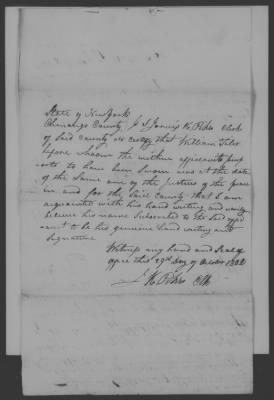 State of New York
Chenango County I James B. Pike Clerk
of Said County do certify that William Tyler
before whom the within affidavit purp
orts to have been Sworn was at the date
of the Same one of the Justices of the peace
in and for the Said County that I am
acquainted with his hand writing and verily
believe his name Subscribed to the Said affid
avit to be his genuine hand writing and
Signature
Witness my hand and Seal of
office this 29th day of October
Clk